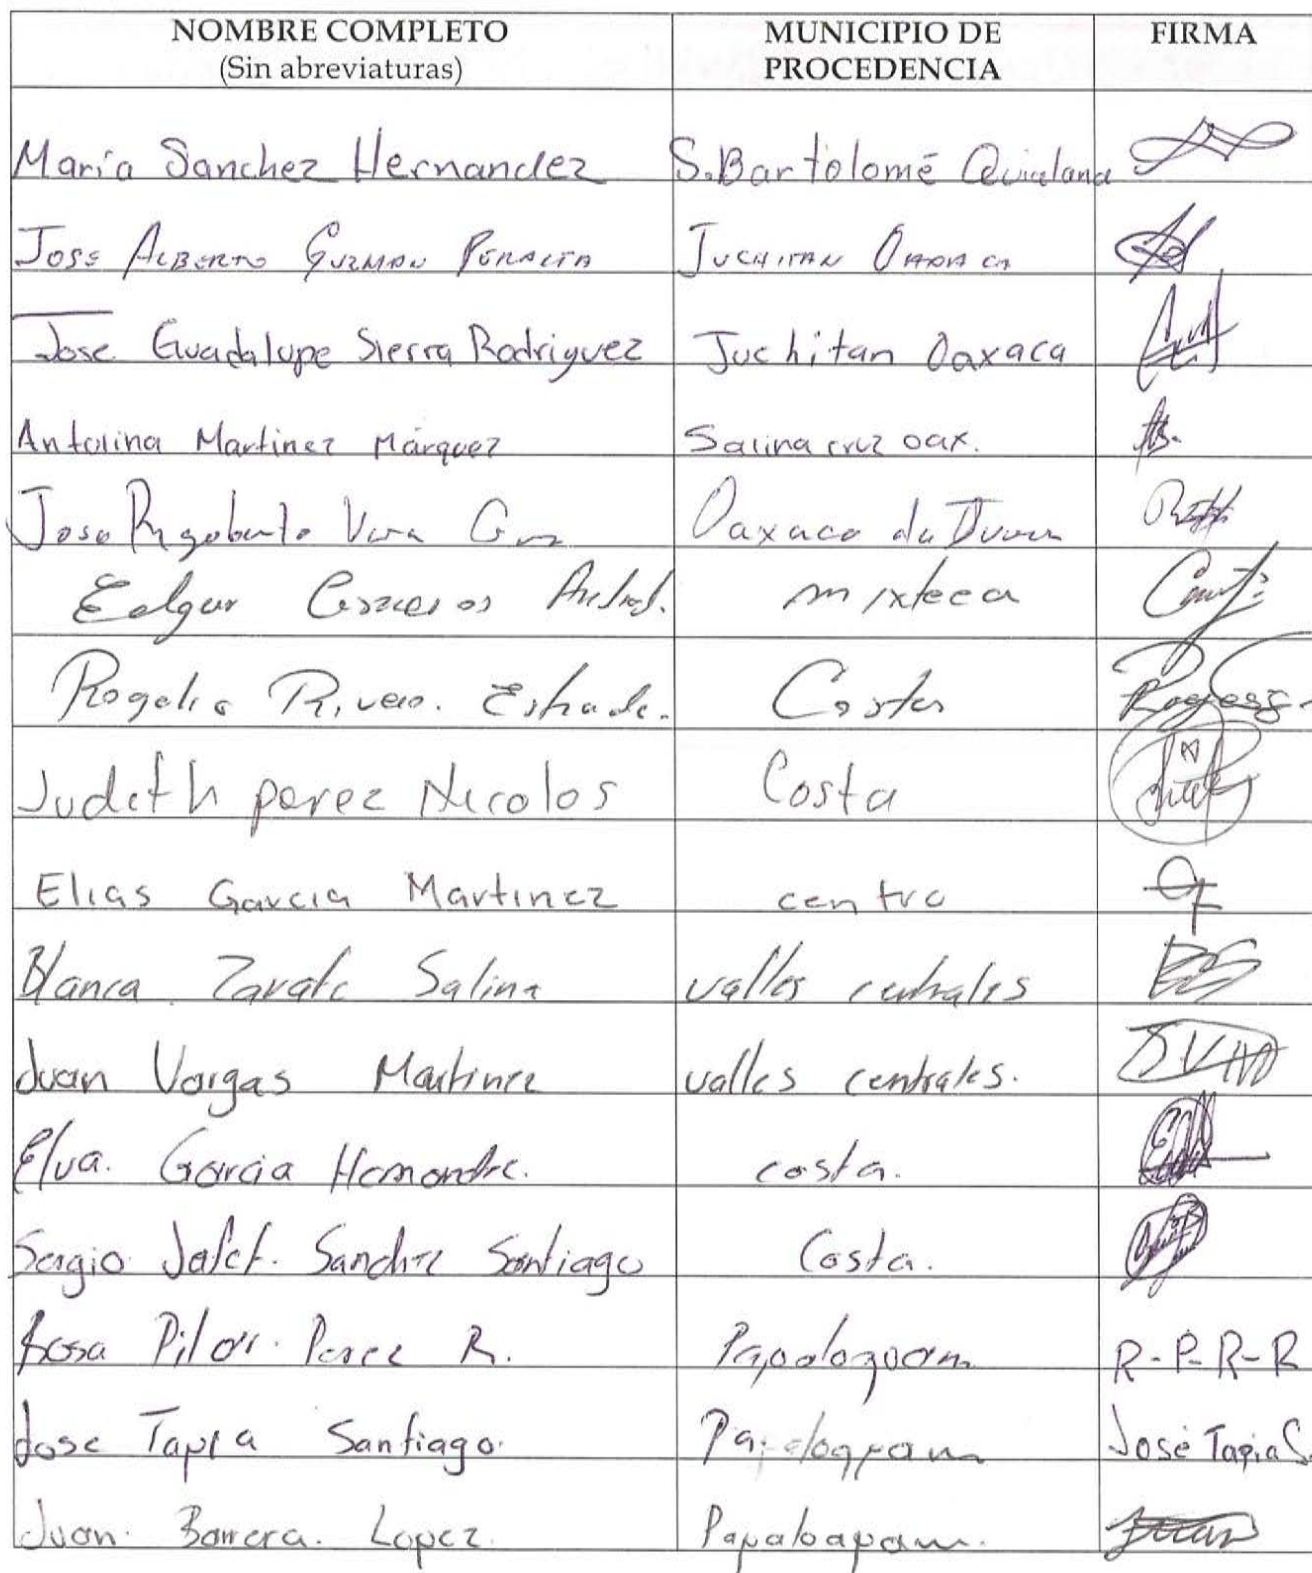 NOMBRE COMPLETO MUNICIPIO DE FIRMA
(Sin abreviaturas) PROCEDENCIA
María Sanchez Hernandez S. Bartolomé
JOSE ALBERTO GUZMAN PERALTA JUCHITAN OAXACA
Jose Guadalupe Sierra Rodriguez Juchitan Oaxaca
Antolina Martinez Márquez Salina cruz oax.
Jose Rigoberto Vera Oaxaca de
Edgar mixteca
Rogelio Rivero. Estrada. Costa
Judith perez Nicolos Costa
Elias Garcia Martinez centro
Blanca Zarate Salina valles centrales
Juan Vargas Martinez valles centrales.
Elva. Garcia Hernandez. costa.
Sergio Jafet. Sanchez Santiago Costa.
Rosa Pilar. Perez R. R-P-R-R
Jose Tapia Santiago. José Tapia S.
Juan. Barrera. Lopez. Papaloapam.